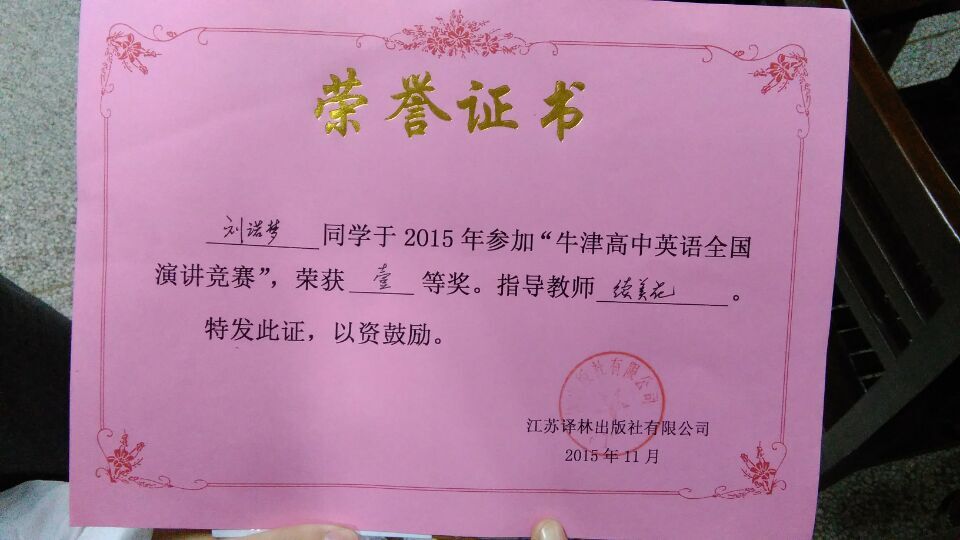 荣誉证书
刘诺梦同学于2015年参加“牛津高中英语全国
演讲竞赛”，荣获壹等奖。指导教师续美花。
特发此证，以资鼓励。
版社有限公司
江苏译林出版社有限公司
2015年11月